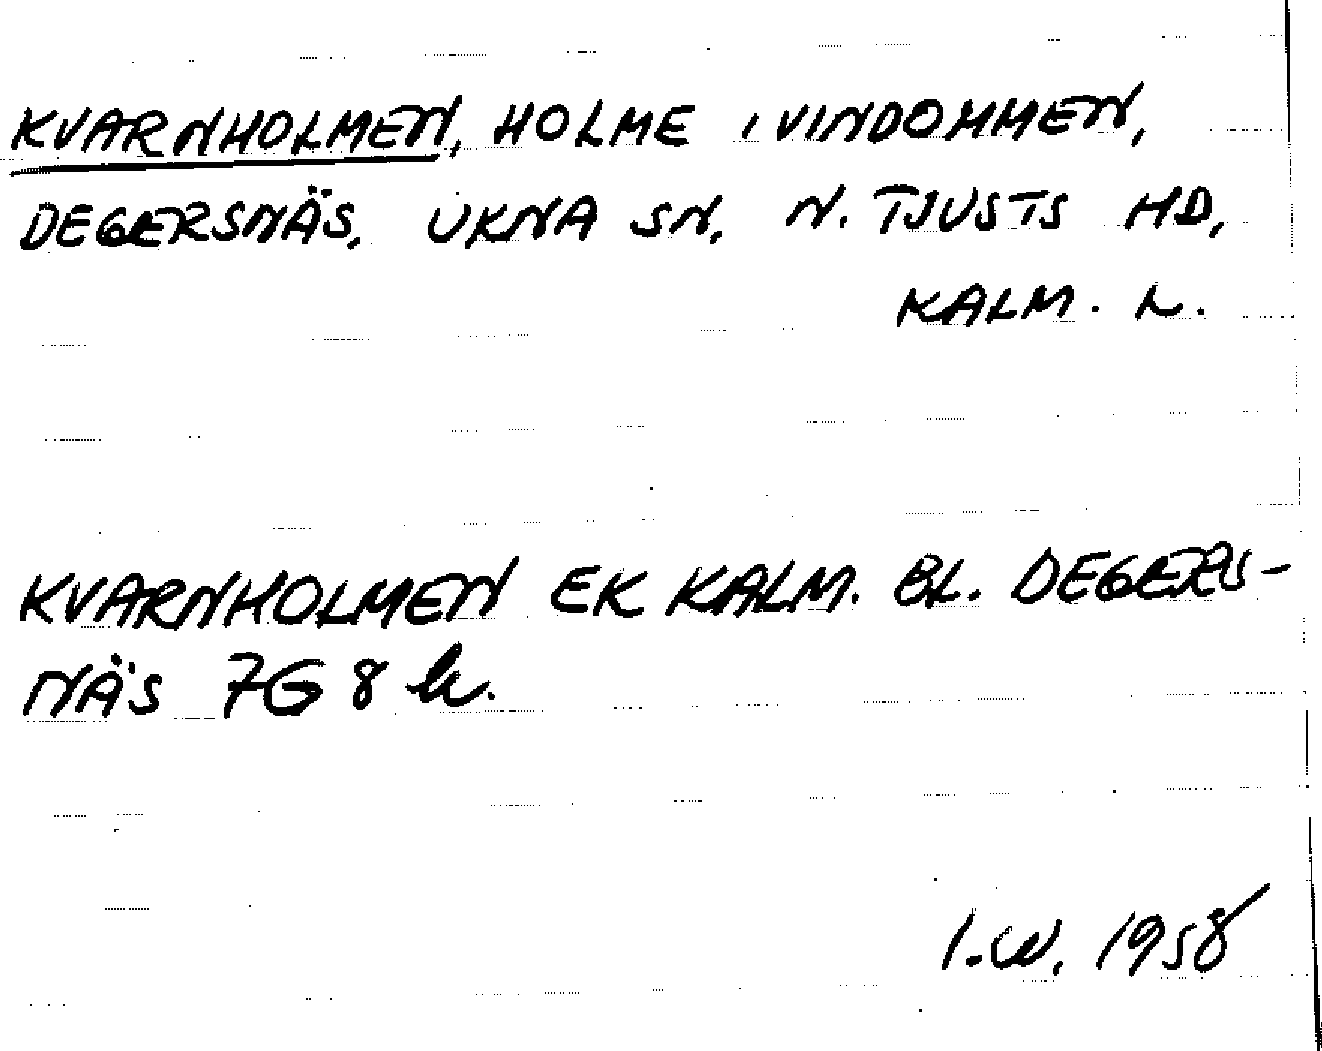 KVARNHOLMEN, HOLME I VINDOMMEN,
DEGERSNÄS, UKNA SN, N. TJUSTS HD,
KALM. L.
KVARNHOLMEN EK KALM. BL. DEGERS-
NÄS 7G 8 h.
I.W. 1958